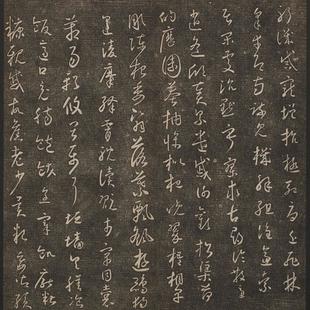 躬譏誡寵增抗極殆辱近恥林
皋幸即兩疏見機解組誰逼索
居閑處沉默寂寥求古尋論散慮
逍遙欣奏累遣慼謝歡招渠荷
的歷園莽抽條枇杷晚翠梧桐早
凋陳根委翳落葉飄颻遊鵾獨
運凌摩絳霄耽讀翫市寓目囊
箱易輶攸畏屬耳垣牆具膳飡
飯適口充腸飽飫烹宰飢厭糟
糠親戚故舊老少異糧妾御績